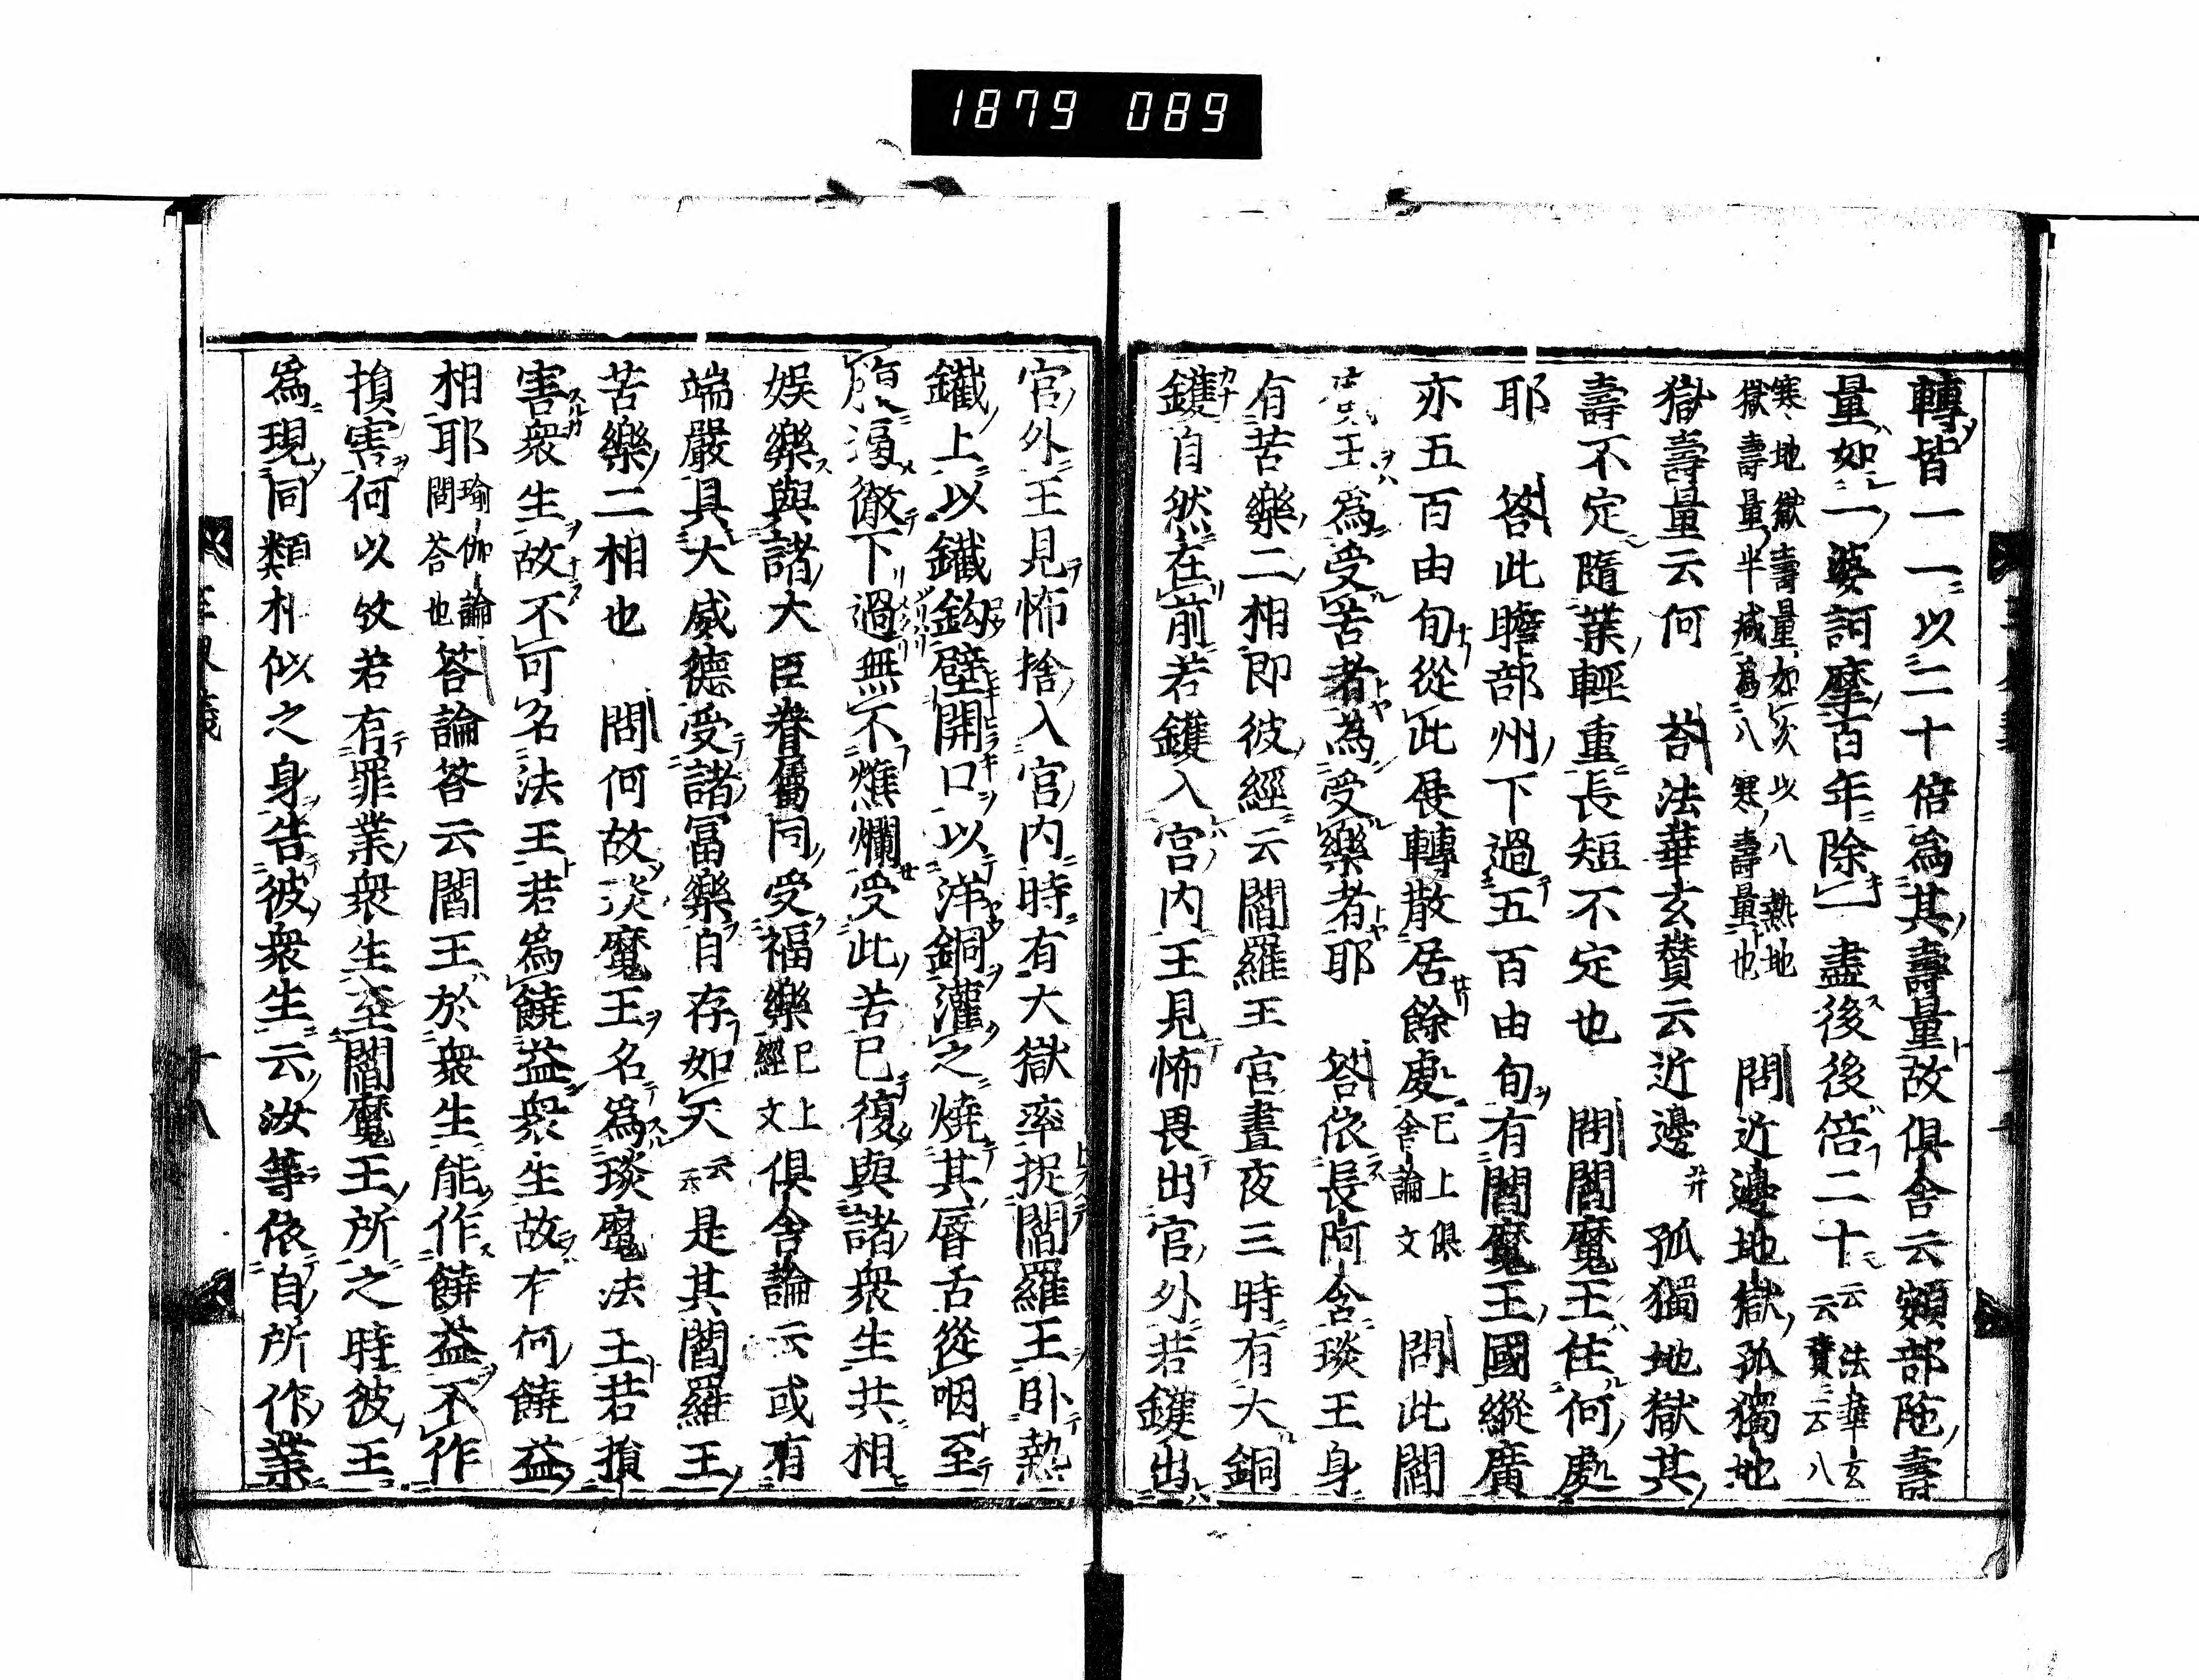 1879 089
轉皆一一以二十倍爲其壽量故俱舍云頞部陁壽
量如一婆訶摩百年除一盡後後倍二十云云 法華玄賛云八
寒地獄壽量如次以八熱地獄壽量半減爲八寒壽量也 問近邊地獄孤獨地
獄壽量云何 荅法華玄賛云近邊 孤獨地獄其
壽不定隨業輕重長短不定也 問閻魔王住何處
耶 荅此贍部州下過五百由旬有閻魔王國縱廣
亦五百由旬從此展轉散居餘處已上俱舍論文 問此閻
王爲受苦者為受樂者耶 荅依長阿含琰王身
有苦樂二相即彼經云閻羅王宮晝夜三時有大銅
鑊自然在前若鑊入宮內王見怖畏出宮外若鑊出
宮外王見怖捨入宮內時有大獄率捉閻羅王卧熱
鐵上以鐵鈎擘開口以洋銅灌之燒其脣舌從咽至
腹滳徹下過無不燋爛受此苦已復與諸衆生共相
娛樂與諸大臣眷屬同受福樂已上經文 俱舍論云或有
端嚴具大威德受諸冨樂自存如天云云 是其閻羅王
苦樂二相也 問何故琰魔王名爲琰魔法王若損
害衆生故不可名法王若爲饒益衆生故有何饒益
相耶瑜伽論問荅也 荅論荅云閻王於衆生能作饒益不作
損害何以故若有罪業衆生至閻魔王所之時彼王
爲現同類相似之身告彼衆生云汝等依自所作業
十八